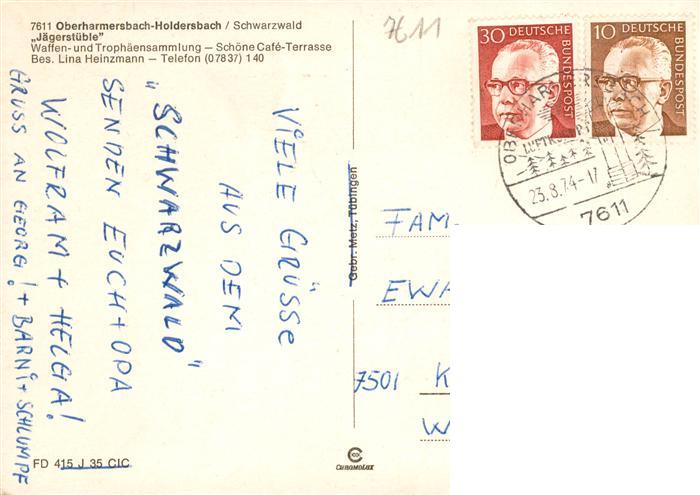 7611 Oberharmersbach-Holdersbach / Schwarzwald
„Jägerstüble"
Waffen- und Trophäensammlung – Schöne Café-Terrasse
Bes. Lina Heinzmann – Telefon (07837) 140
7611
30 DEUTSCHE BUNDESPOST
10 DEUTSCHE BUNDESPOST
23.8.74-17
7611
VIELE GRÜSSE
AUS DEM
„SCHWARZWALD"
SENDEN EUCH + OPA
WOLFRAM + HELGA!
GRUSS AN GEORG! + BARNI + SCHLUMPF
Gebr. Metz, Tübingen
FAM
EWA
7501 K
W
FD 415 J 35 CIC
CHROMOLUX